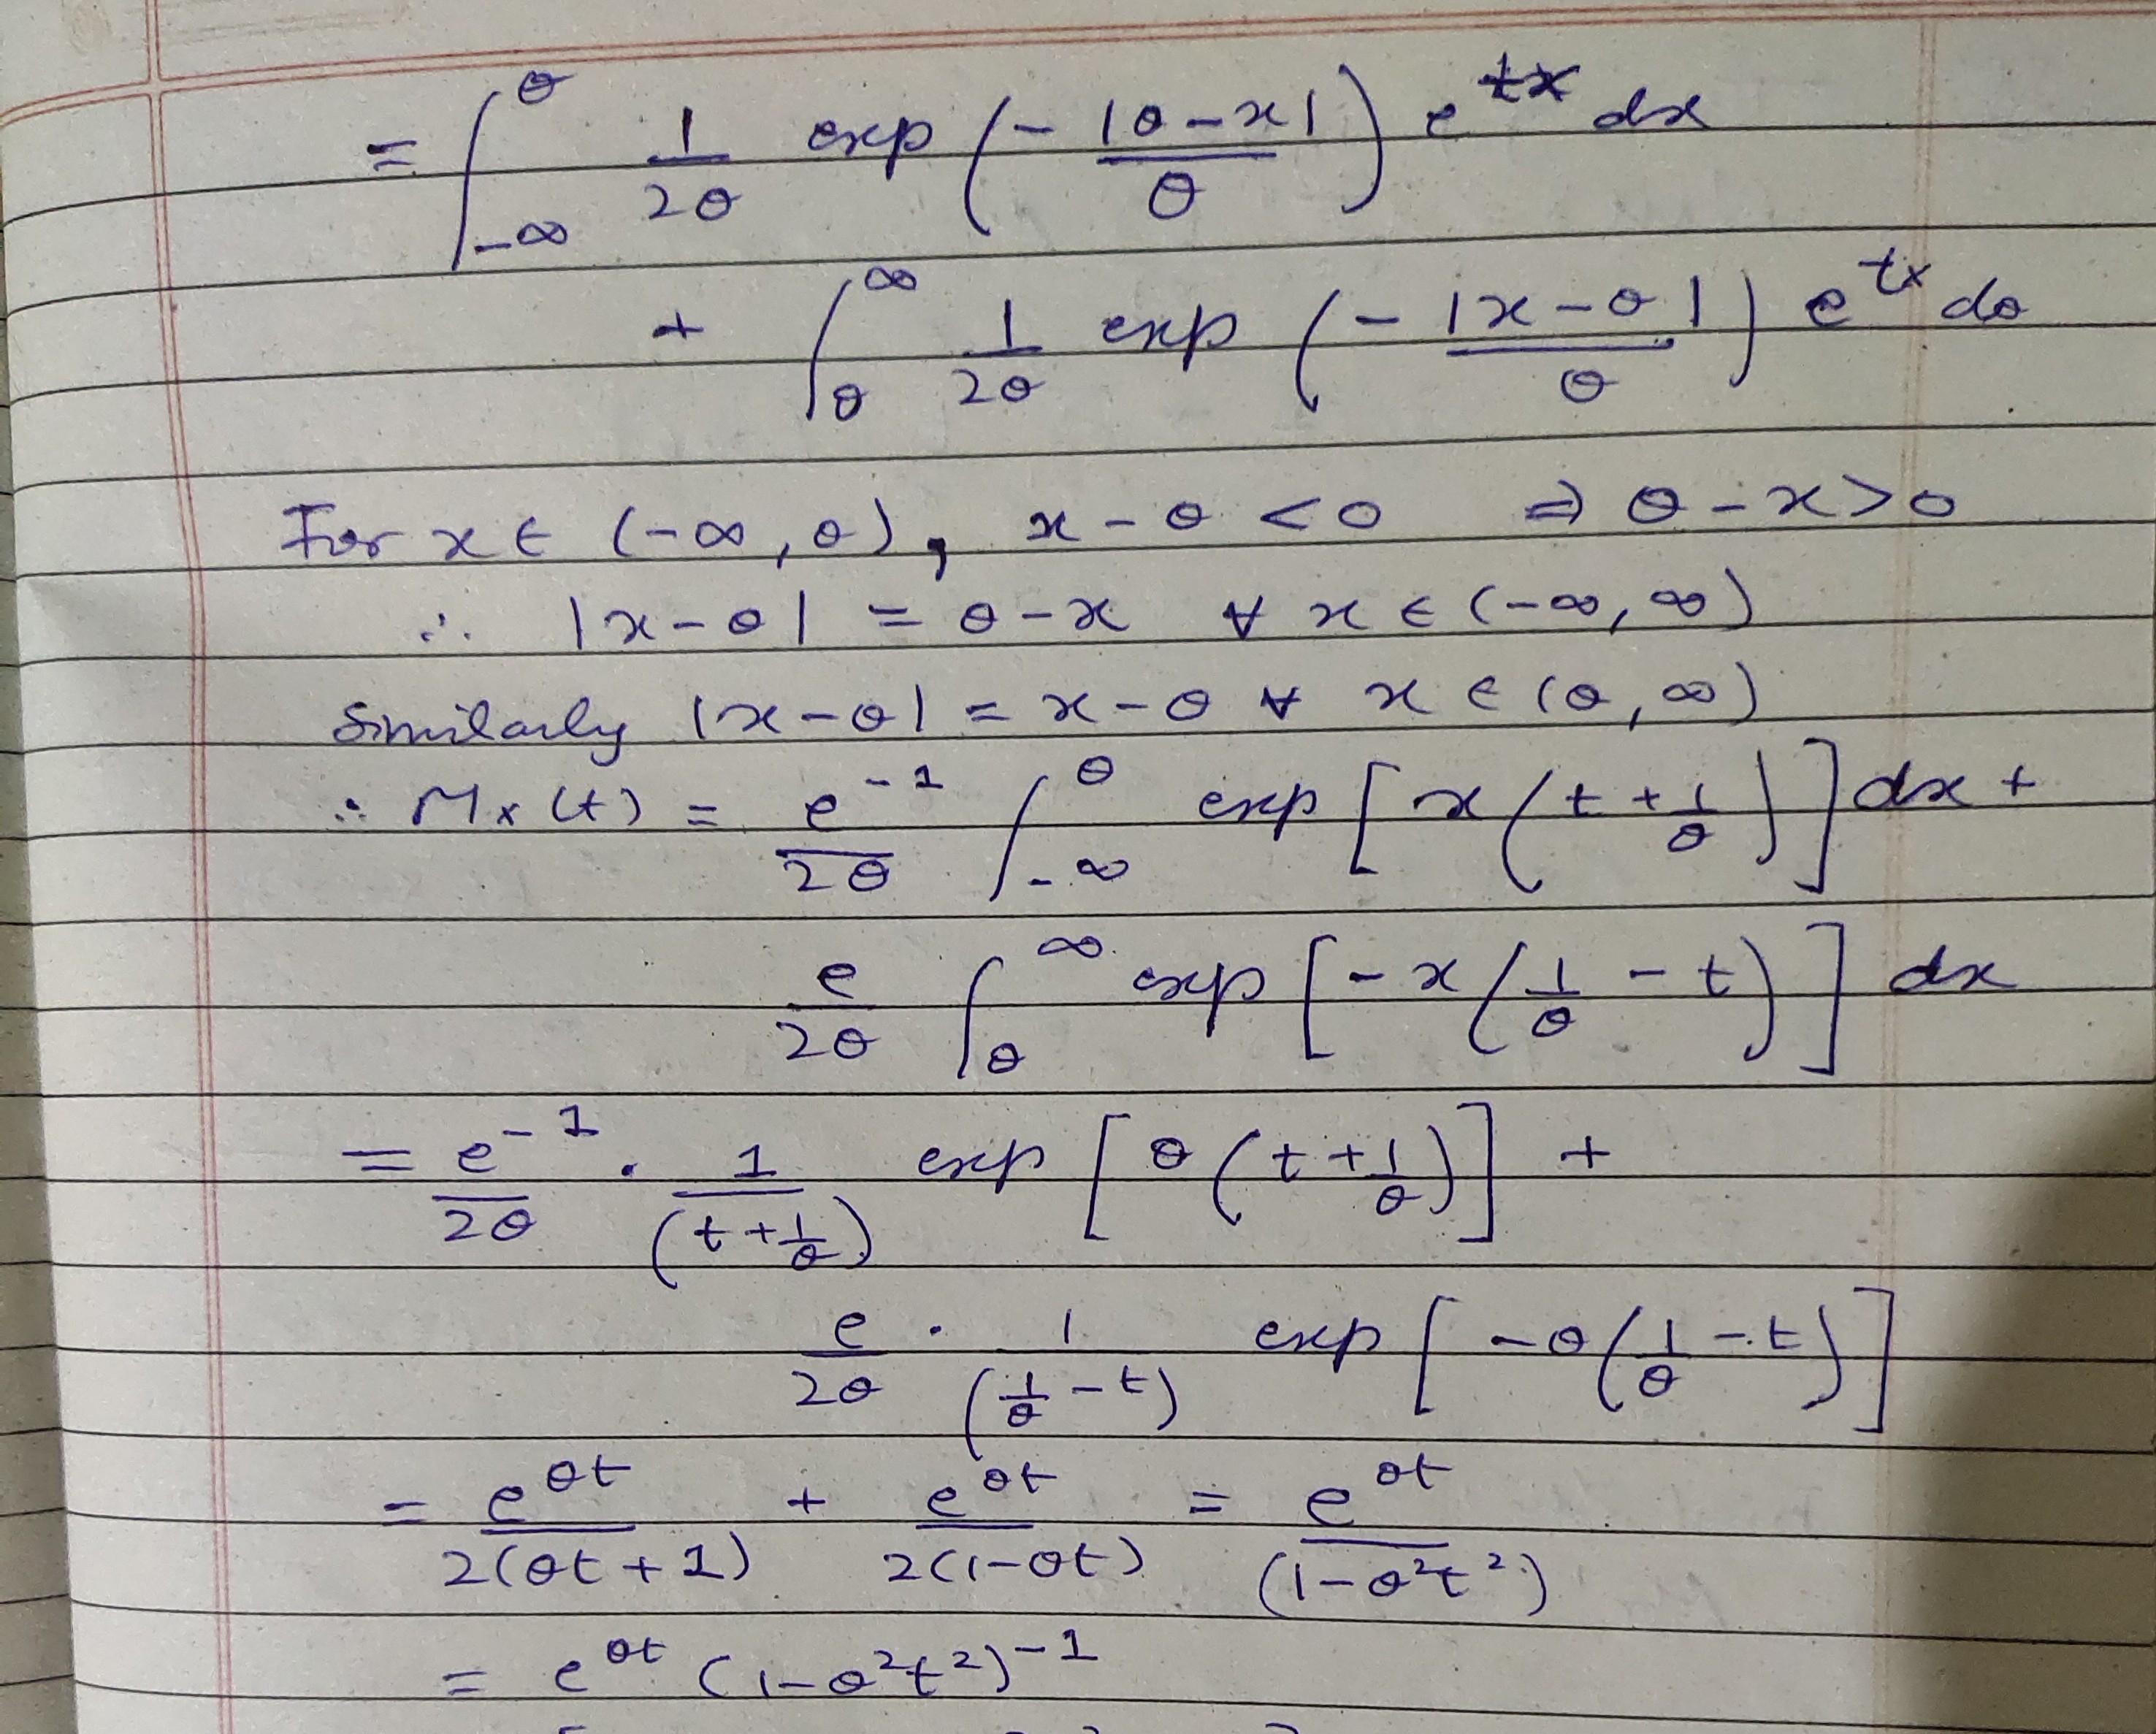 = ∫_{-∞}^{θ} 1/2θ exp (- |θ-x|/θ) e^{tx} dx
+ ∫_{θ}^{∞} 1/2θ exp (- |x-θ|/θ) e^{tx} dθ
For x ∈ (-∞, θ), x - θ < 0 ⇒ θ - x > 0
∴ |x-θ| = θ-x ∀ x ∈ (-∞, ∞)
Similarly |x-θ| = x-θ ∀ x ∈ (θ, ∞)
∴ Mx(t) = e^{-1}/2θ ∫_{-∞}^{θ} exp [x(t + 1/θ)] dx +
e/2θ ∫_{θ}^{∞} exp [-x(1/θ - t)] dx
= e^{-1}/2θ . 1/(t + 1/θ) exp [θ(t + 1/θ)] +
e/2θ . 1/(1/θ - t) exp [-θ(1/θ - t)]
= e^{θt}/2(θt + 1) + e^{θt}/2(1-θt) = e^{θt}/(1-θ²t²)
= e^{θt} (1-θ²t²)^{-1}